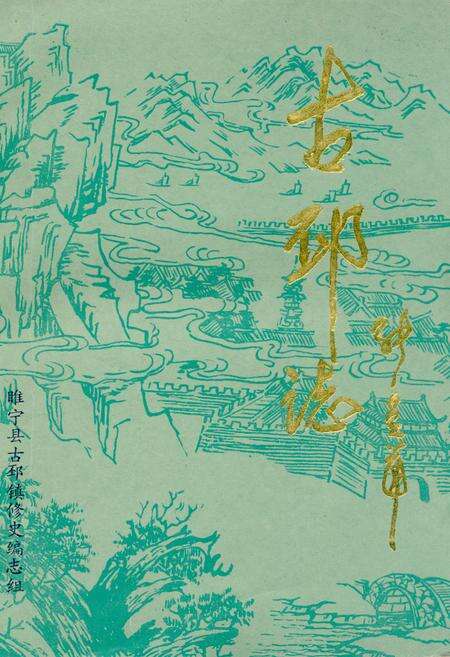 古邳誌
睢宁县古邳镇修史编志组